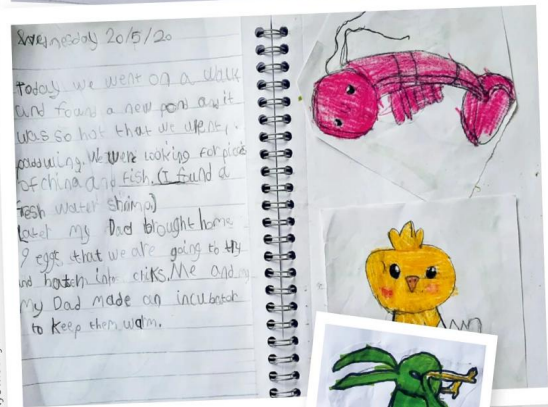 Wednesday 20/5/20
today we went on a walk
and found a new pond and it
was so hot that we went
paddwing. We were looking for pices
of china and fish. (I fund a
fresh water shrimp)
Later my Dad brought home
9 eggs that we are going to try
and hatch into chiks. Me and
my Dad made an incubator
to keep them walm.